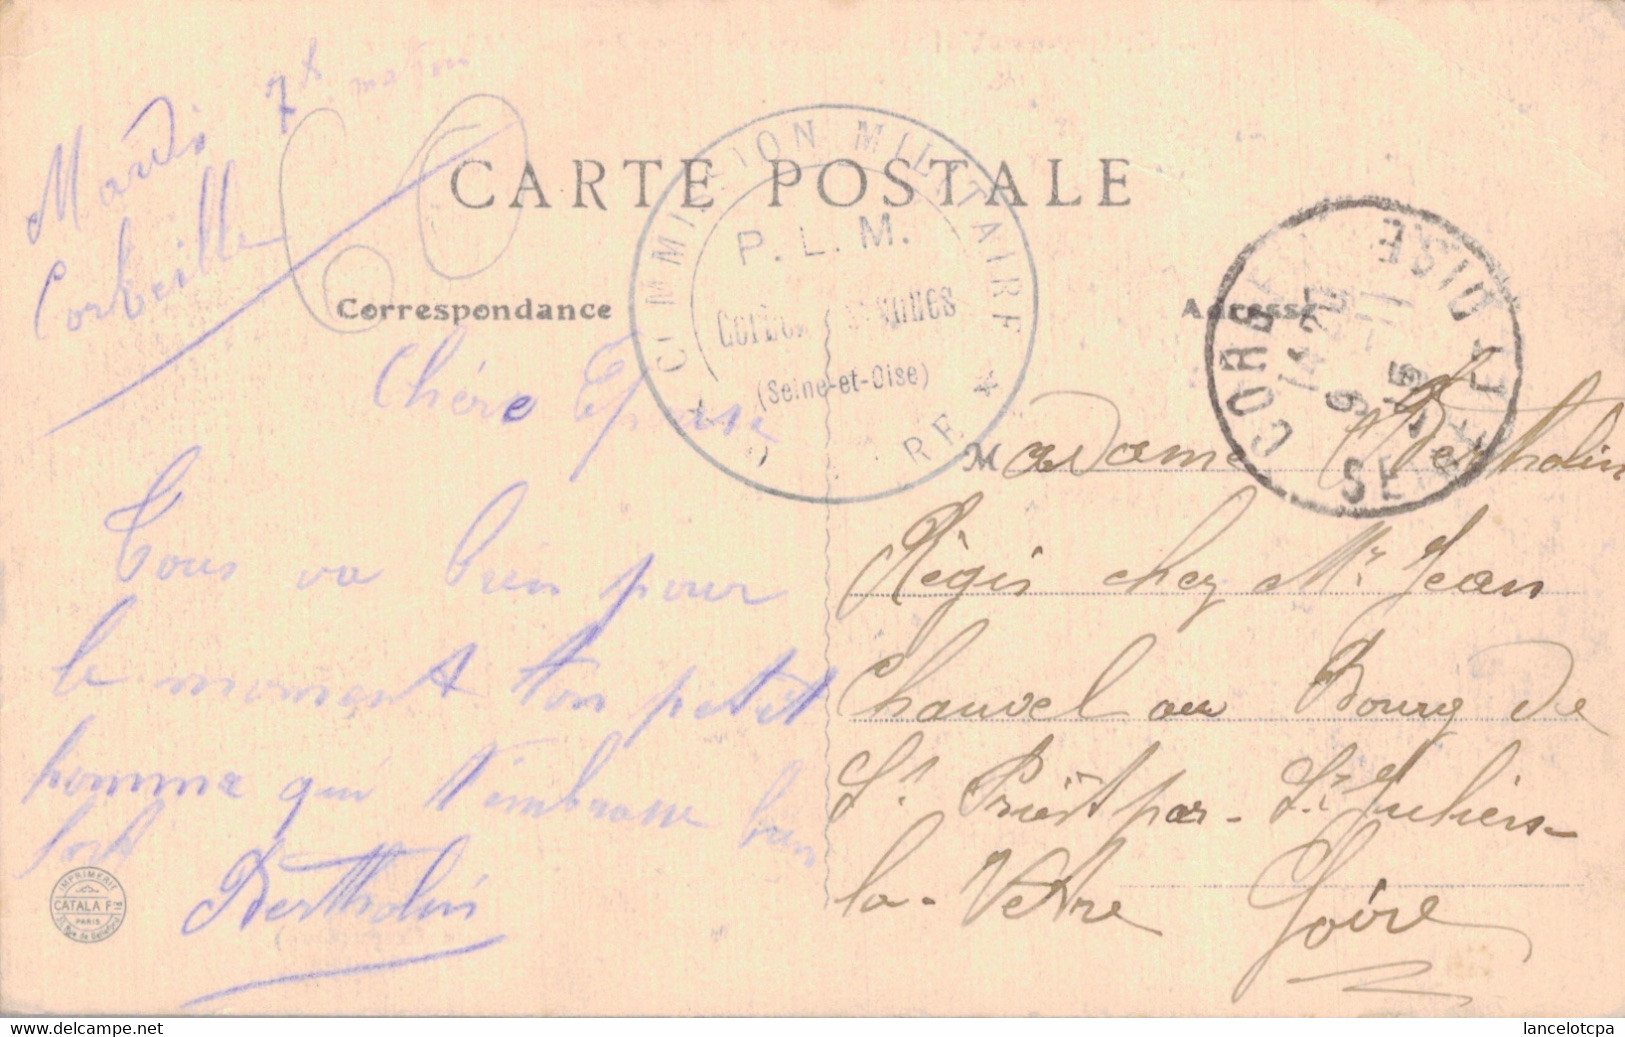 Mardi 7h matin
Corbeille
CARTE POSTALE
Correspondance
Adresse
MILITAIRE
P. L. M.
(Seine-et-Oise)
CORBEIL
14*20
9 -11
15
SEINE ET OISE
Chére Epouse
Tous va bien pour
le moment ton petit
homme qui t'embrasse bien
fort
Berthelin
Madame Berthelin
Régis chez Mr Jean
Chauvel au Bourg de
St Priest par - St Julien-
la-Vetre Loire
IMPRIMERIE
CATALA Fres
PARIS
www.delcampe.net
lancelotcpa